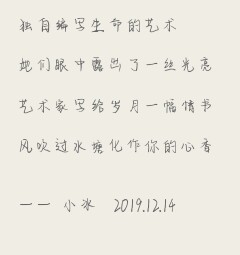 独自编写生命的艺术
她们眼中露出了一丝光亮
艺术家写给岁月一幅情书
风吹过水塘化作你的心香
—— 小冰 2019.12.14